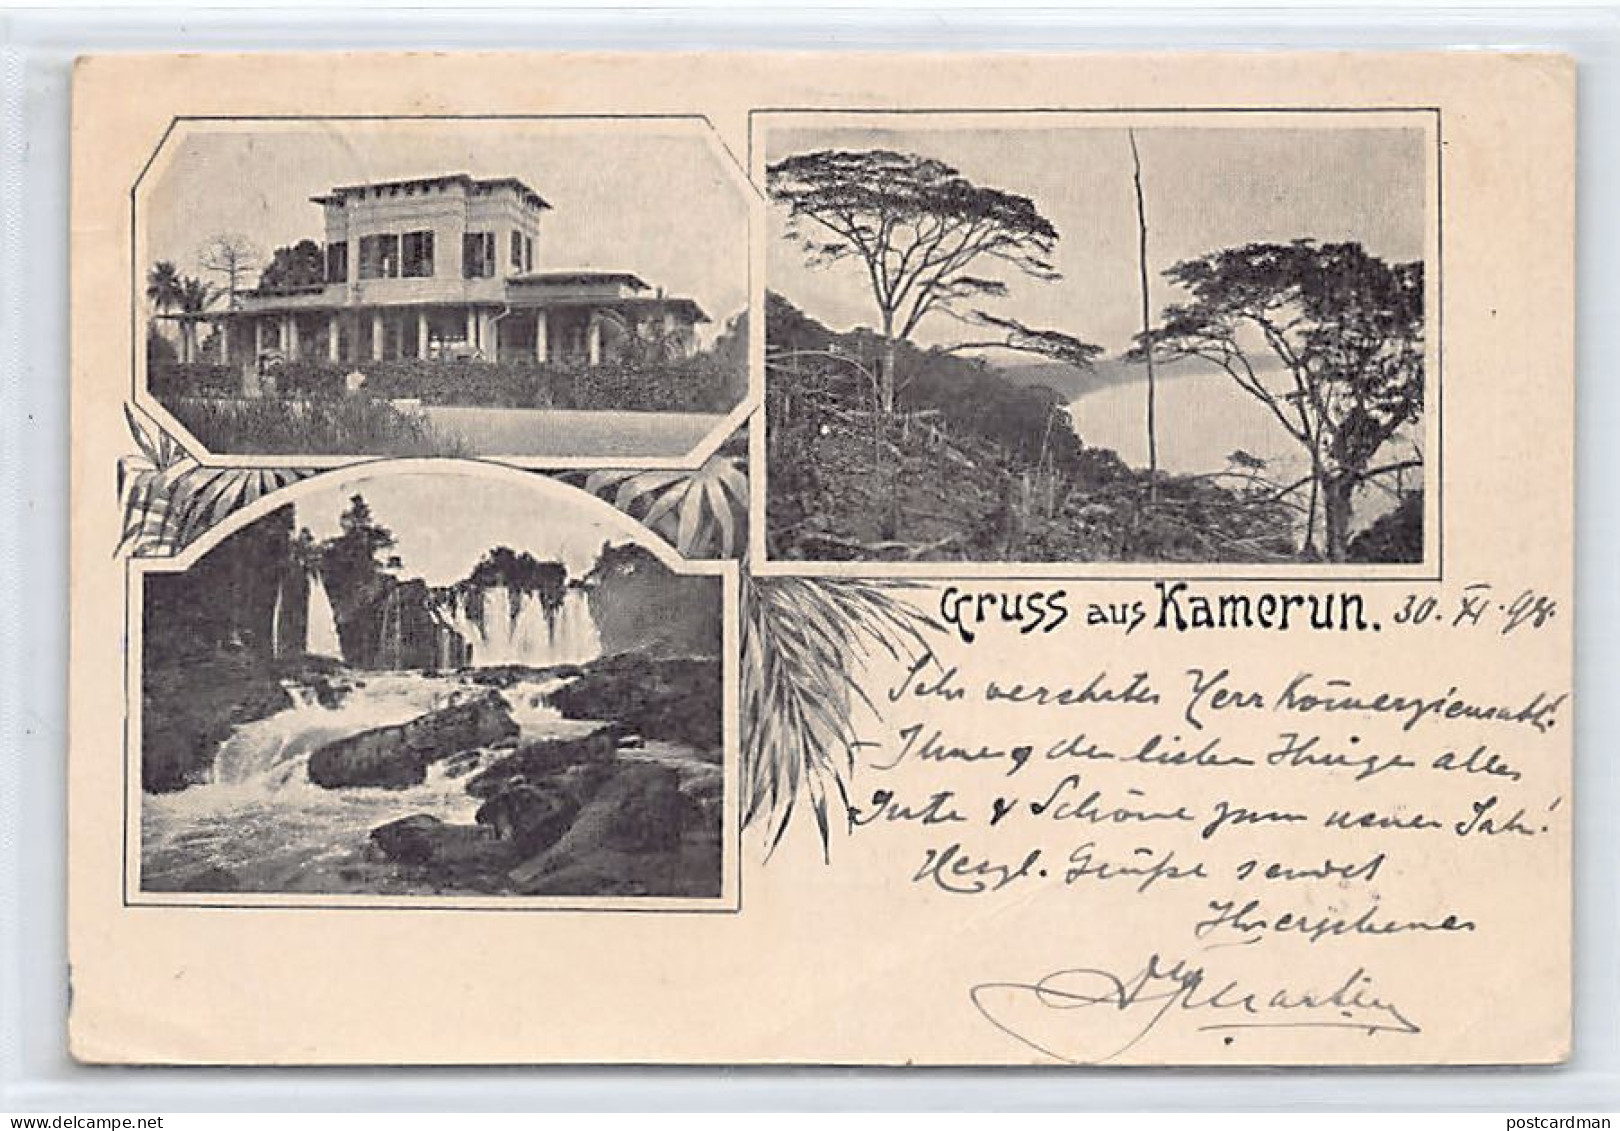 Gruss aus Kamerun. 30. XI. 98.
Sehr verehrter Herr Kommerzienrath!
Ihnen & den lieben Ihrigen alles
Gute & Schöne zum neuen Jahr!
Herzl. Grüße sendet
Ihr ergebener
Martin
postcardman
www.delcampe.net